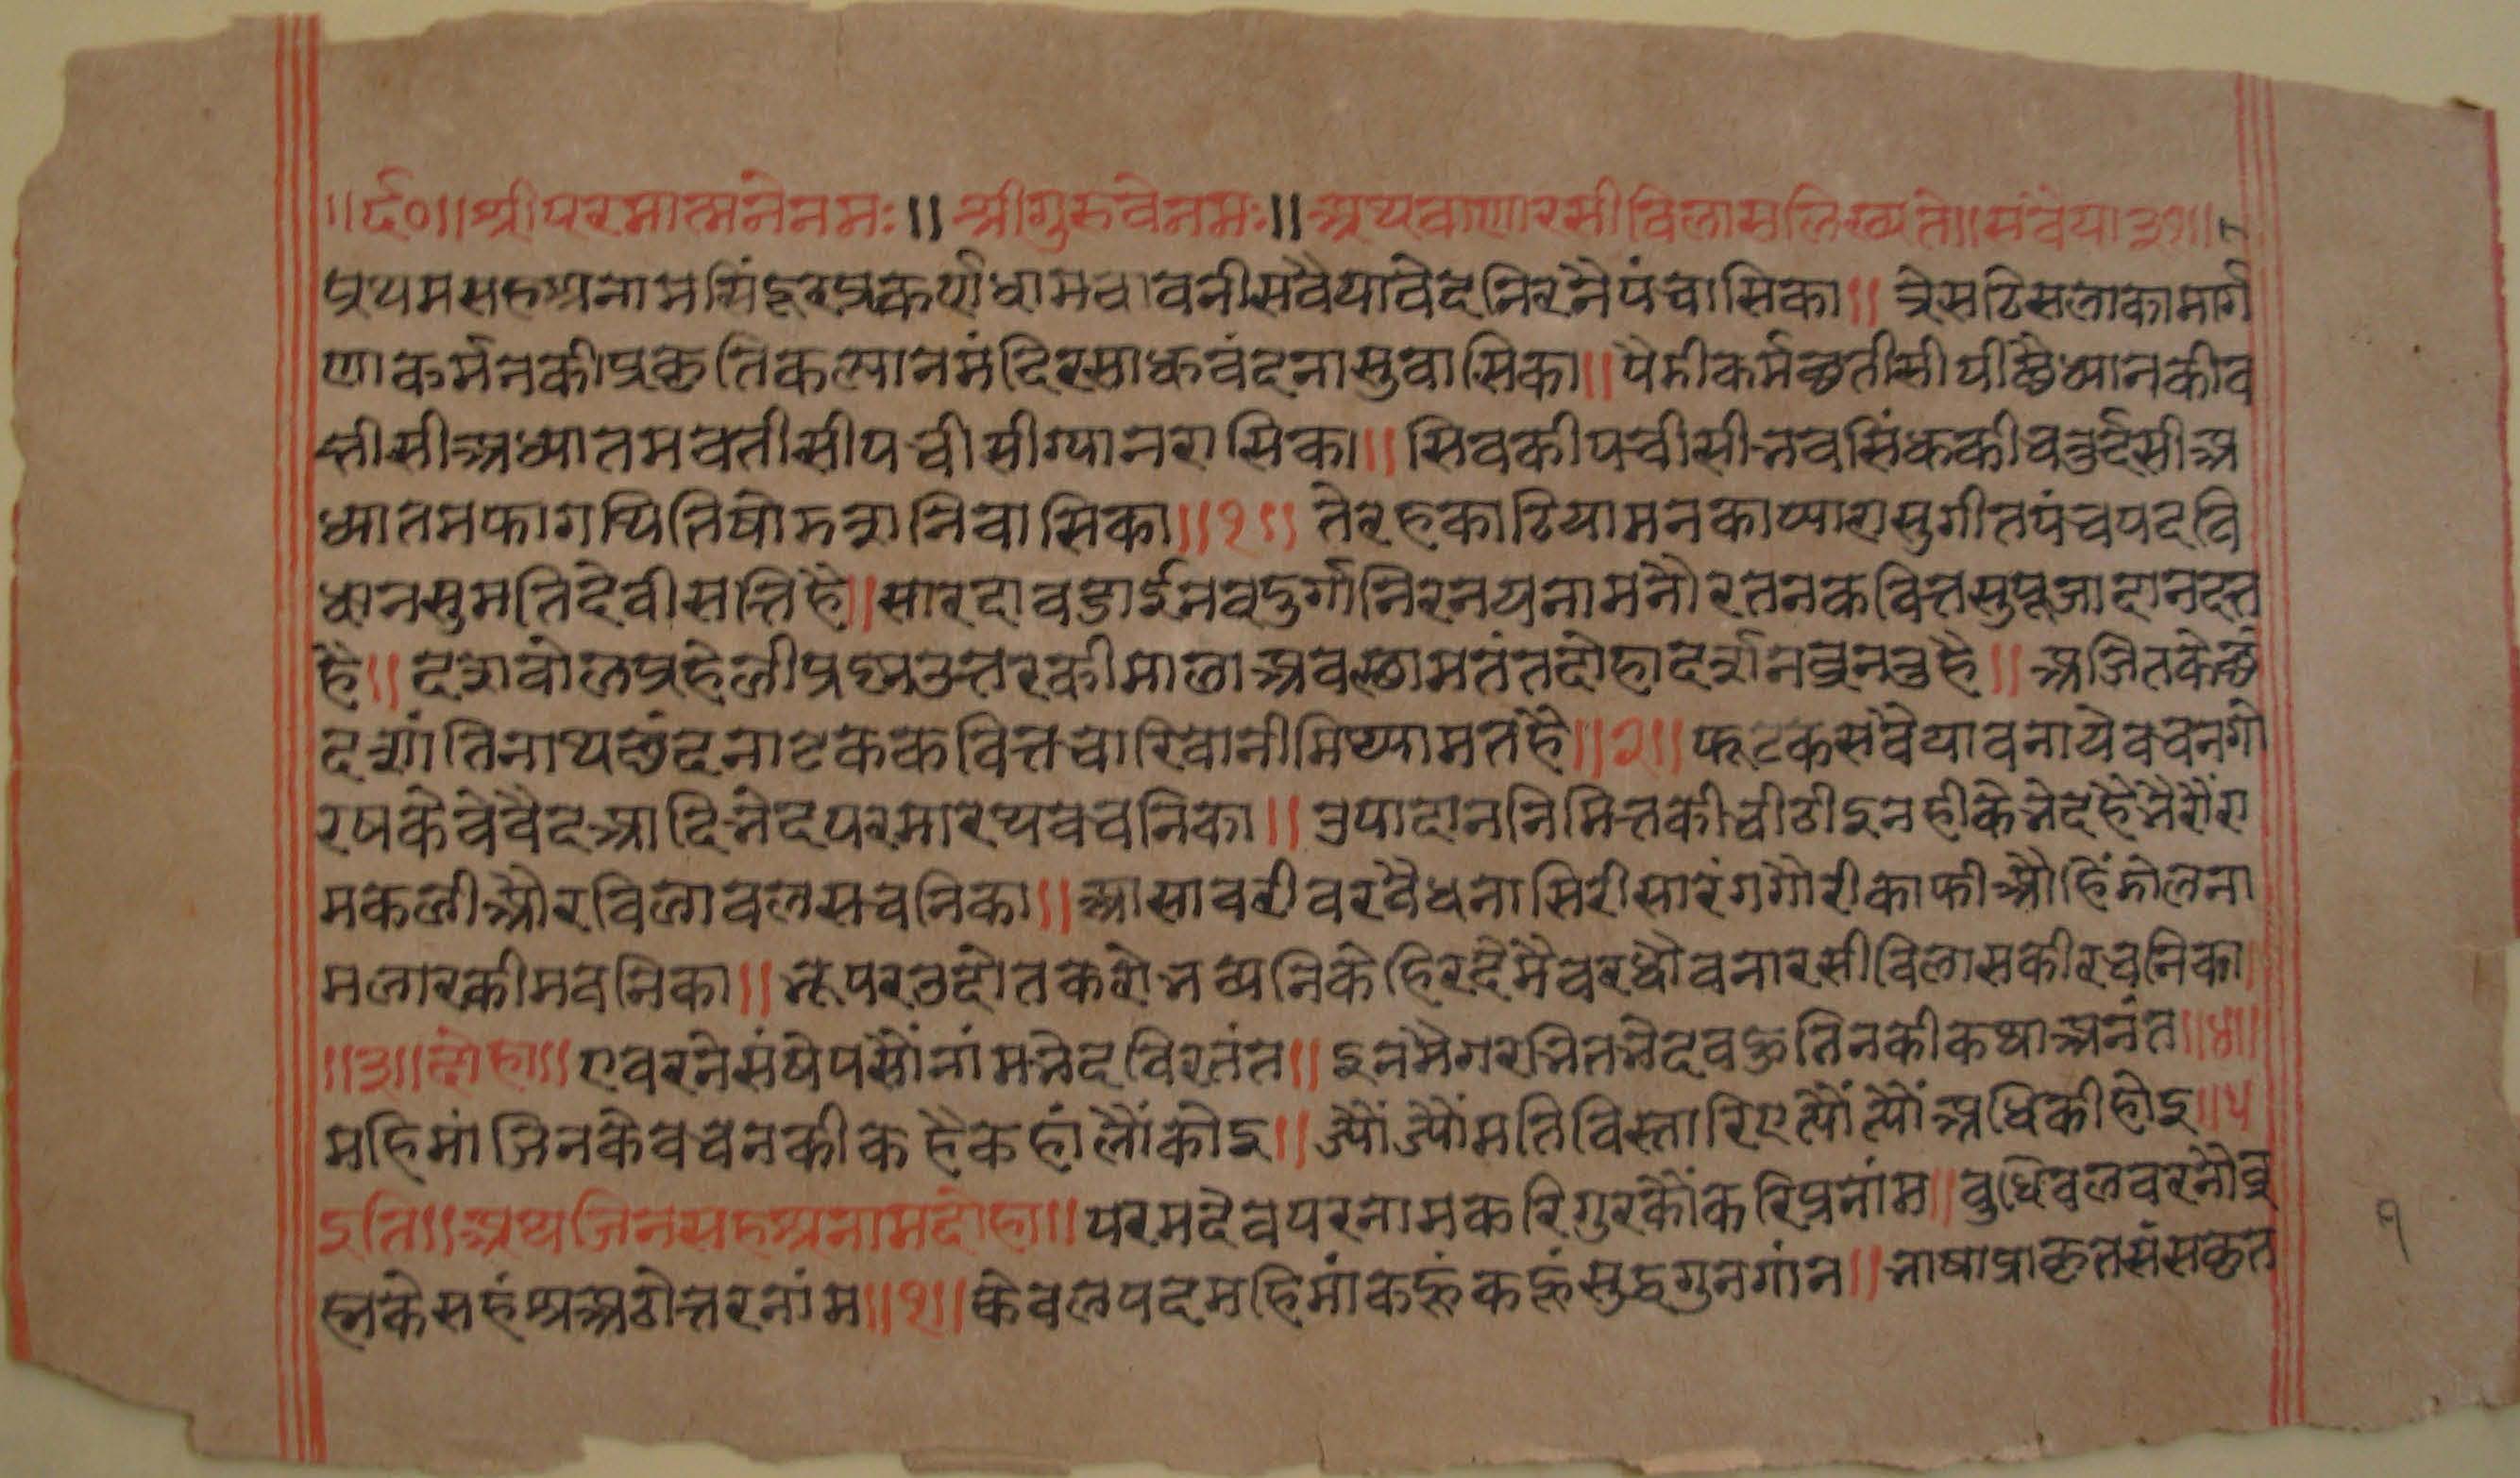 ॥र्द०॥श्रीपरमात्मनेनमः॥श्रीगुरुवेनमः॥अथवाणारसीविलासलिख्यते॥सवैया३१॥
प्रथमसहश्रनामसिंदूरप्रकर्णधामवावनीसवैयावेदनिरनैपंचासिका॥त्रेसठिसलाकामार्ग
णाकर्मनकीप्रकृतिकल्यानमंदिरसाधवंदनासुवासिका॥पैडीकर्मछतीसीपीछैध्यानकीव
त्तीसीअध्यातमवतीसीपचीसीग्यानरासिका॥सिवकीपचीसीभवसिंधकीचतुर्दसीअ
ध्यातमफागथितिषोडशनिवासिका॥१॥तेरहकाठियामनकाप्यारासुगीतपंचपदवि
धानसुमतिदेवीसत्तिहै॥सारदावडाईनवदुर्गानिरनयनामनौरतनकवित्तसुपूजादानदत्त
है॥दशवोलप्रहेलीप्रष्णउत्तरकीमालाअवस्छामतंतदोहादर्शनव्रनतुहै॥अजितकेछं
दशांतिनाथछंदनाटककवित्तचारिवानीमिथ्यामतहै॥२॥फुटकसवैयावनायेवचनगो
रषकेवेवैदआदिभेदपरमारथवचनिका॥उपादाननिमित्तकीचीठीइनहीकेभेदहैभैरौंरा
मकलीऔरविलावलसचनिका॥आसावरीवरवैधनासिरीसारंगगौरीकाफीऔहिंडोलना
मलारकीमचनिका॥भूपरउदोतकरोभव्यनिकेहिरदैमैवरधौवनारसीविलासकीरचनिका
॥३॥दोहा॥एवरनेसंषेपसौंनांमभेदविरतंत॥इनमैगरभितभेदवहुतिनकीकथाअनंत॥४॥
महिमांजिनकेवचनकीकहैकहांलौंकोइ॥ज्यौंज्यौंमतिविस्तारिएत्यौंत्यौंअधिकीहोइ॥५
इति॥अथजिनसहश्रनामदोहा॥परमदेवपरनामकरिगुरकौंकरिप्रनांम॥वुधिवलवरनोव्र
ह्मकेसहंश्रअठोत्तरनांम॥१॥केवलपदमहिमांकहूंकहूंसुद्धगुनगांन॥भाषाप्राकृतसंसकृत
१